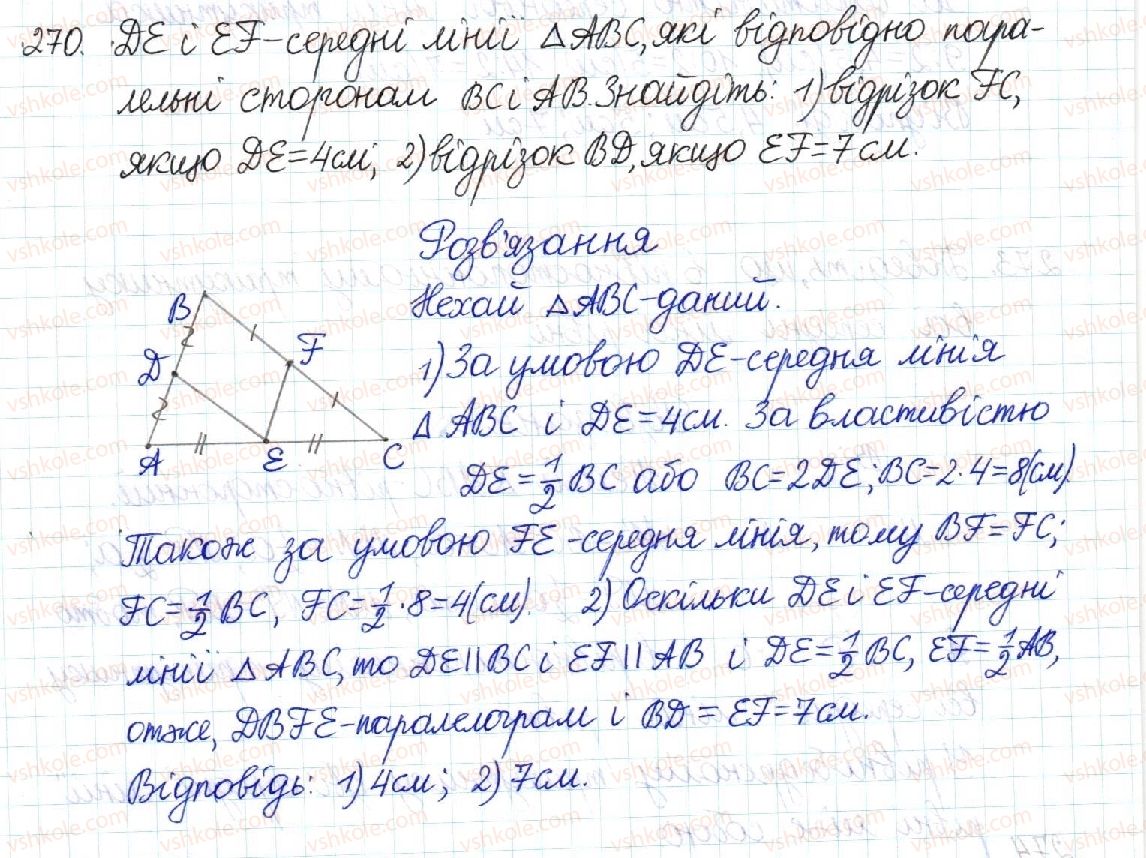 270. DE і EF-середні лінії △ABC, які відповідно пара-
лельні сторонам BC і AB. Знайдіть: 1) відрізок FC,
якщо DE=4см; 2) відрізок BD, якщо EF=7см.
Розв'язання
Нехай △ABC-даний.
B
D
F
A
E
C
1) За умовою DE-середня лінія
△ ABC і DE=4см. За властивістю
DE=1/2 BC або BC=2DE; BC=2·4=8(см)
Також за умовою FE-середня лінія, тому BF=FC;
FC=1/2 BC, FC=1/2·8=4(см). 2) Оскільки DE і EF-середні
лінії △ABC, то DE||BC і EF||AB і DE=1/2 BC, EF=1/2 AB,
отже, DBFE-паралелограм і BD = EF=7см.
Відповідь: 1) 4см; 2) 7см.
vshkole.com